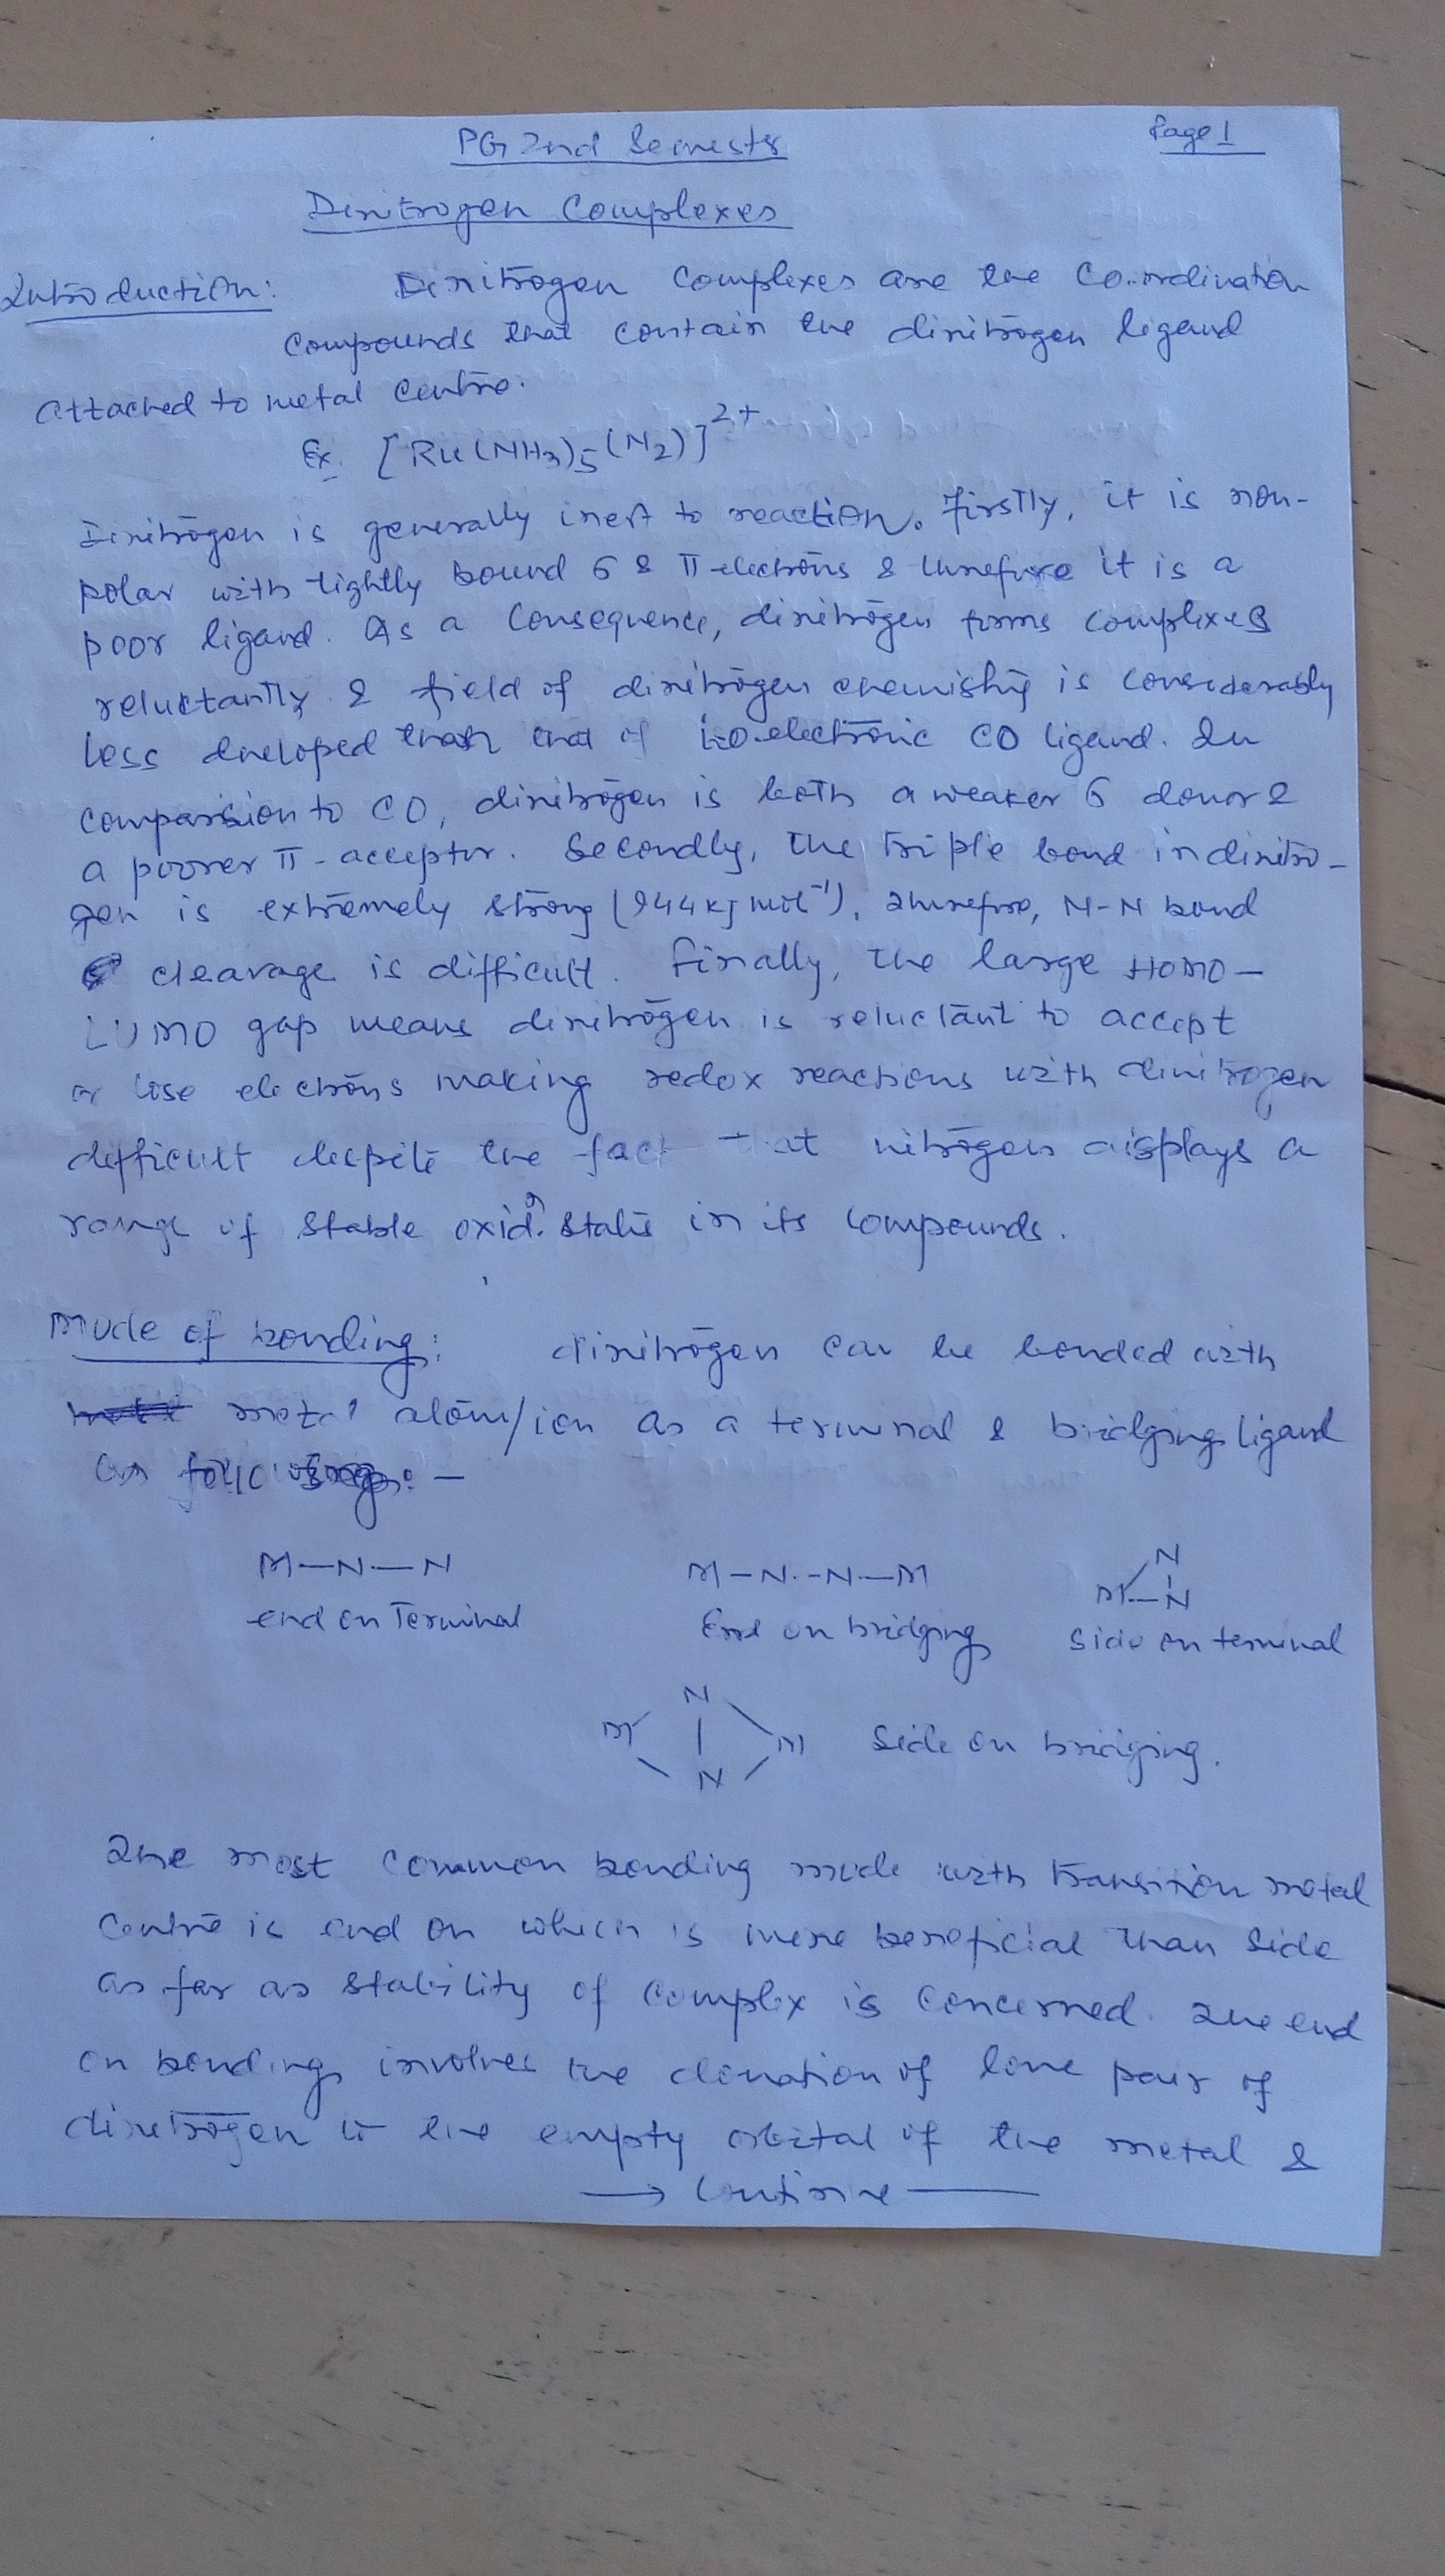 PG 2nd Semester
Page 1
Dinitrogen Complexes
Introduction: Dinitrogen Complexes are the Co-ordination
Compounds that contain the dinitrogen ligand
attached to metal centre.
Ex. [Ru(NH3)5(N2)]2+
Dinitrogen is generally inert to reaction. Firstly, it is non-
polar with tightly bound σ & π electrons & therefore it is a
poor ligand. As a Consequence, dinitrogen forms complexes
reluctantly & field of dinitrogen chemistry is considerably
less developed than that of iso-electronic CO ligand. In
comparision to CO, dinitrogen is both a weaker σ donor &
a poorer π-acceptor. Secondly, the triple bond in dinitro-
gen is extremely strong (944 kJ mol-1), Therefore, N-N bond
cleavage is difficult. Finally, the large HOMO-
LUMO gap means dinitrogen is reluctant to accept
or lose electrons making redox reactions with dinitrogen
difficult despite the fact that nitrogen displays a
range of stable oxidn. state in its compounds.
Mode of bonding: dinitrogen can be bonded with
metal atom/ion as a terminal & bridging ligand
as following:-
M—N—N
end on Terminal
M—N--N—M
End on bridging
N
M—N
Side on terminal
N
M M
N
Side on bridging.
The most common bonding mode with transition metal
centre is end on which is more beneficial than side
as far as stability of complex is concerned. The end
on bonding involves the donation of lone pair of
dinitrogen to the empty orbital of the metal &
→ Continue —